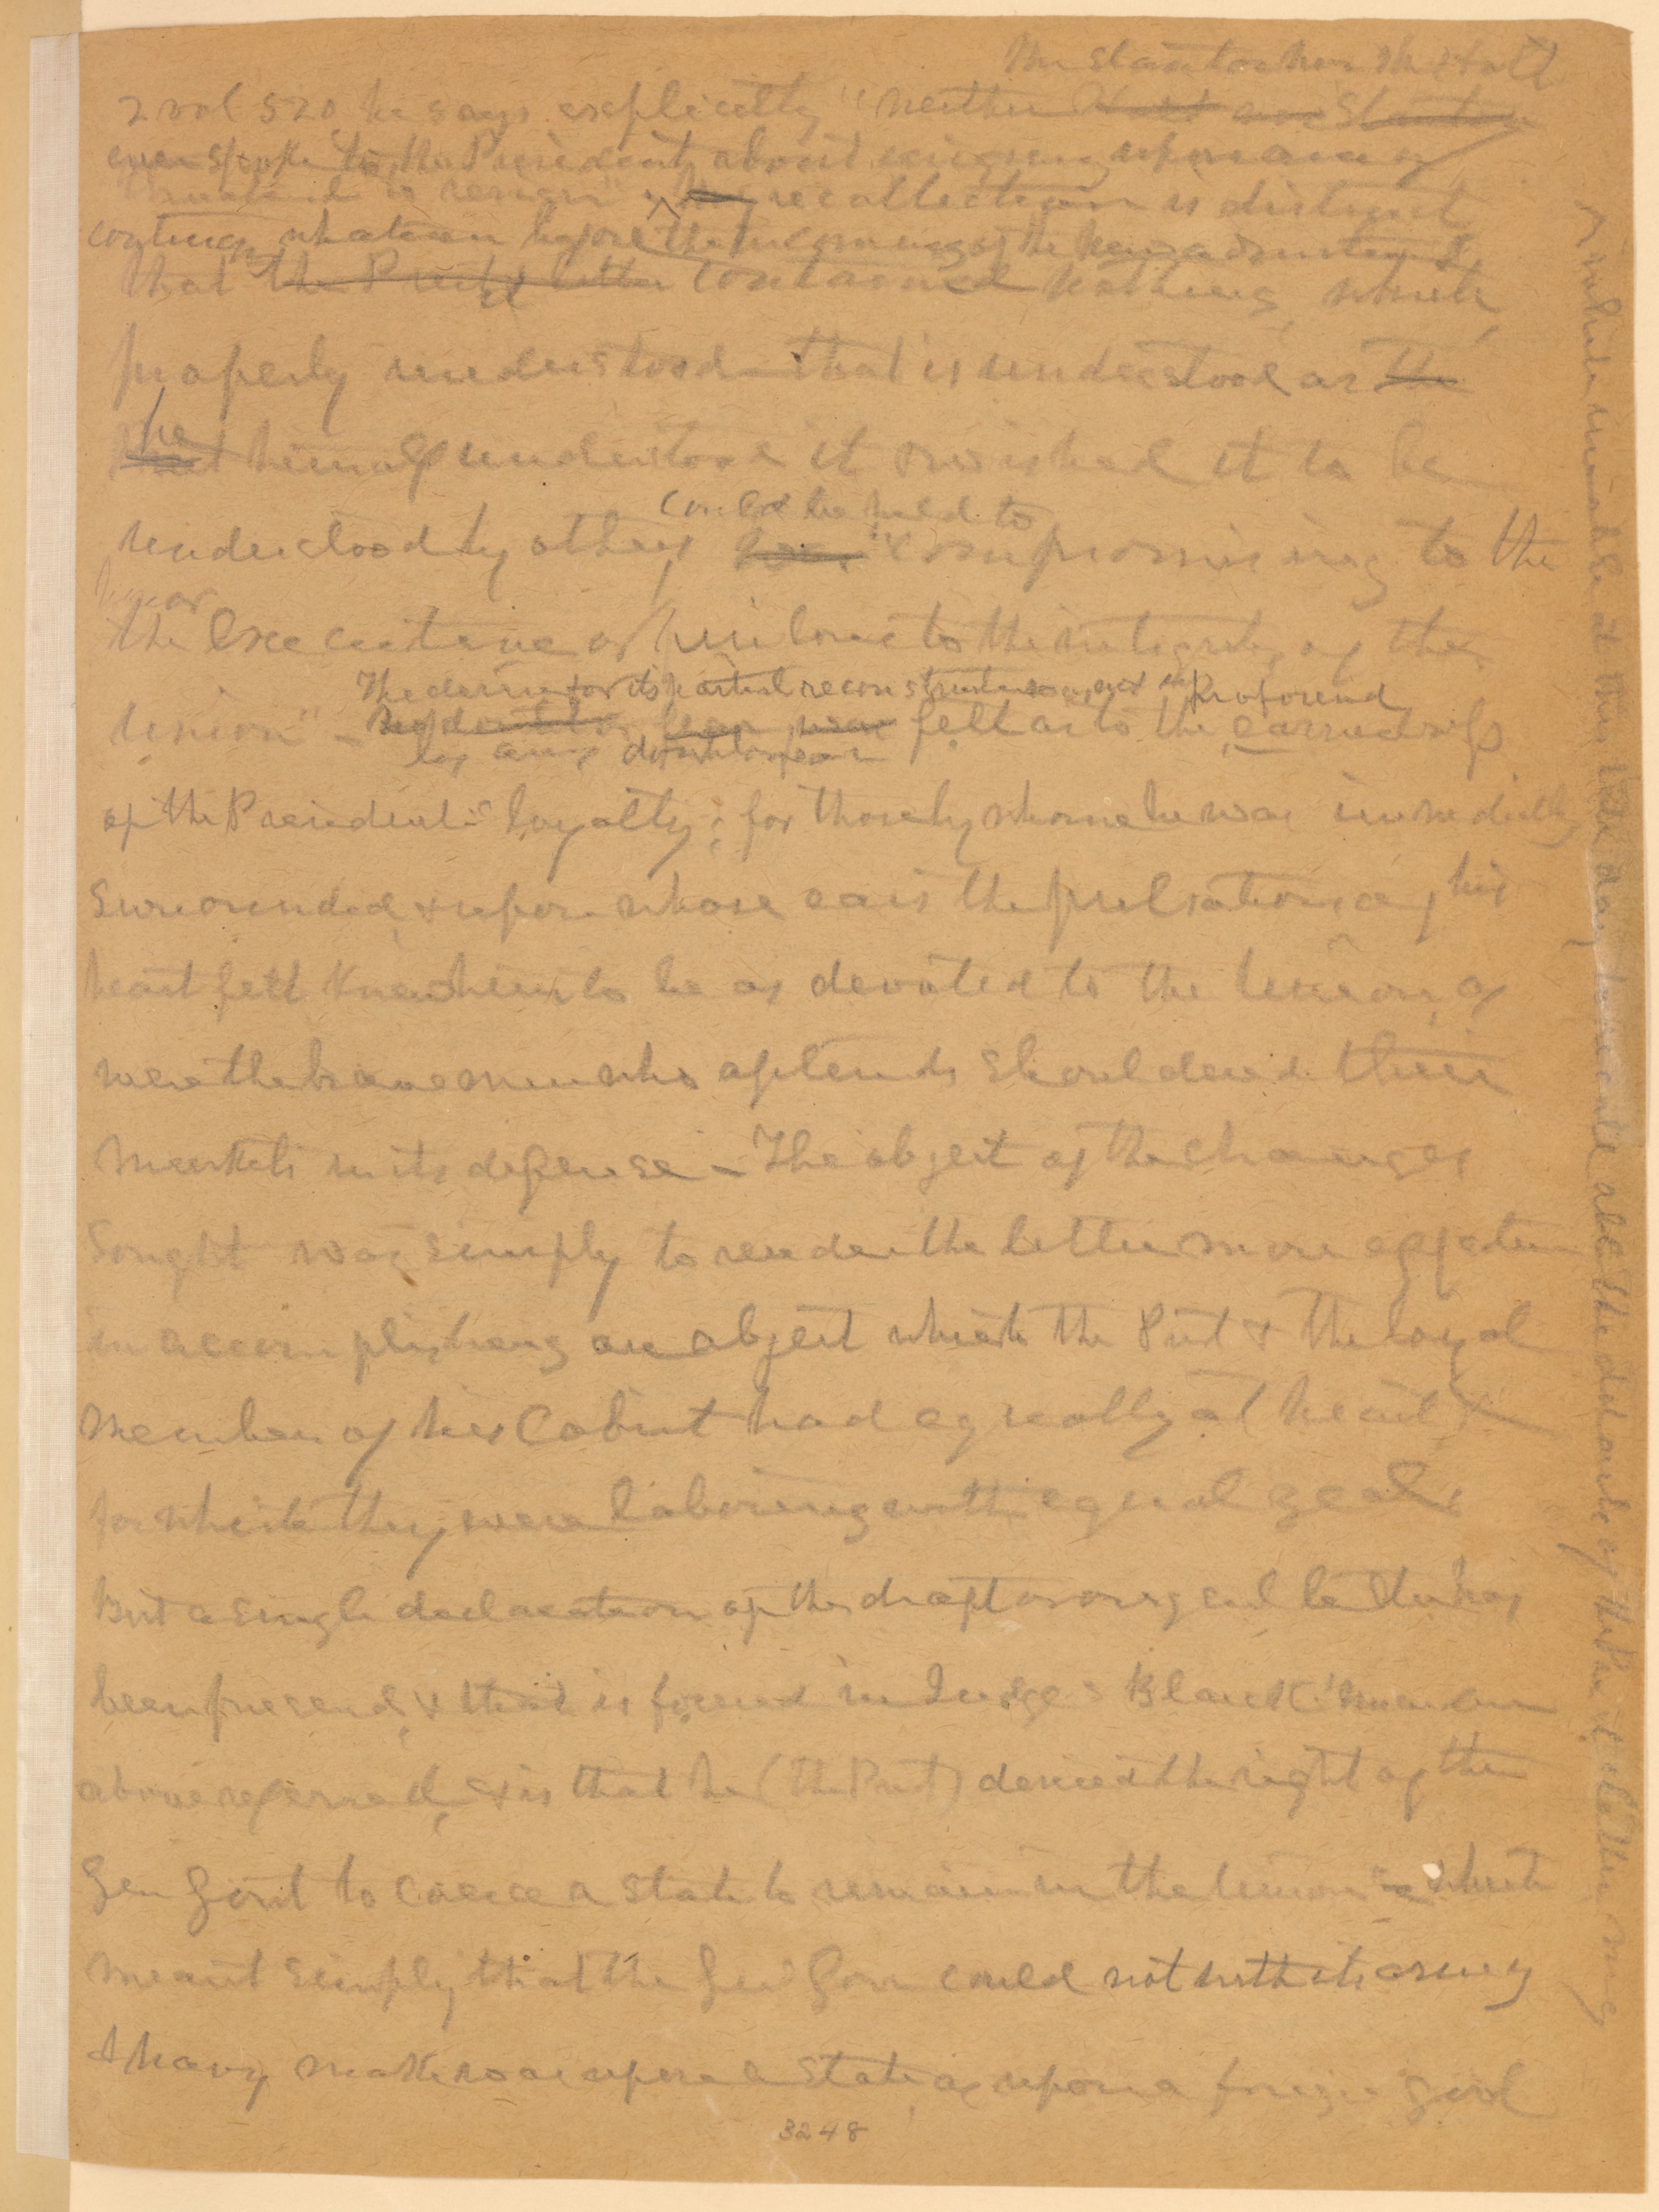 Mr Stanton nor Mr Holt
2 vol 520, he says explicitly "neither Holt nor Stanton
ever spoke to the President about resigning upon any
contingency whatever before the incoming of the new administration
threatened to resign" recollection is distinct
that the Presidts letter contained nothing, which,
properly understood—that is understood as the
he
himself understood it or wished it to be
could be held to
understood by others "compromising to the
honor
the Executive or his love to the integrity of the
The desire for its partial reconstruction
Union" – doubt or fear was felt as to the earnestness
by any doubt or fear
of the President's loyalty; for those by whom he was immediately
surrounded, & upon whose ears the pulsations of his
heart fell knew him to be as devoted to the Union, as
were the brave men who afterwds shouldered their
muskets in its defense – The object of the changes
sought was simply to render the letter more effective
in accomplishing an object which the Pdt & the loyal
members of his Cabinet had equally at heart &
for which they were laboring with equal zeal
But a single declaration of the draft or original letter has
been preserved, & that is found in Judge Black's memdum
above referred, & is that he (the Pret) denied the right of the
Gen Govt to coerce a State to remain in the Union – which
meant simply that the Gen Gov could not with its army
& navy make war upon a State as upon a foreign Govt
3248